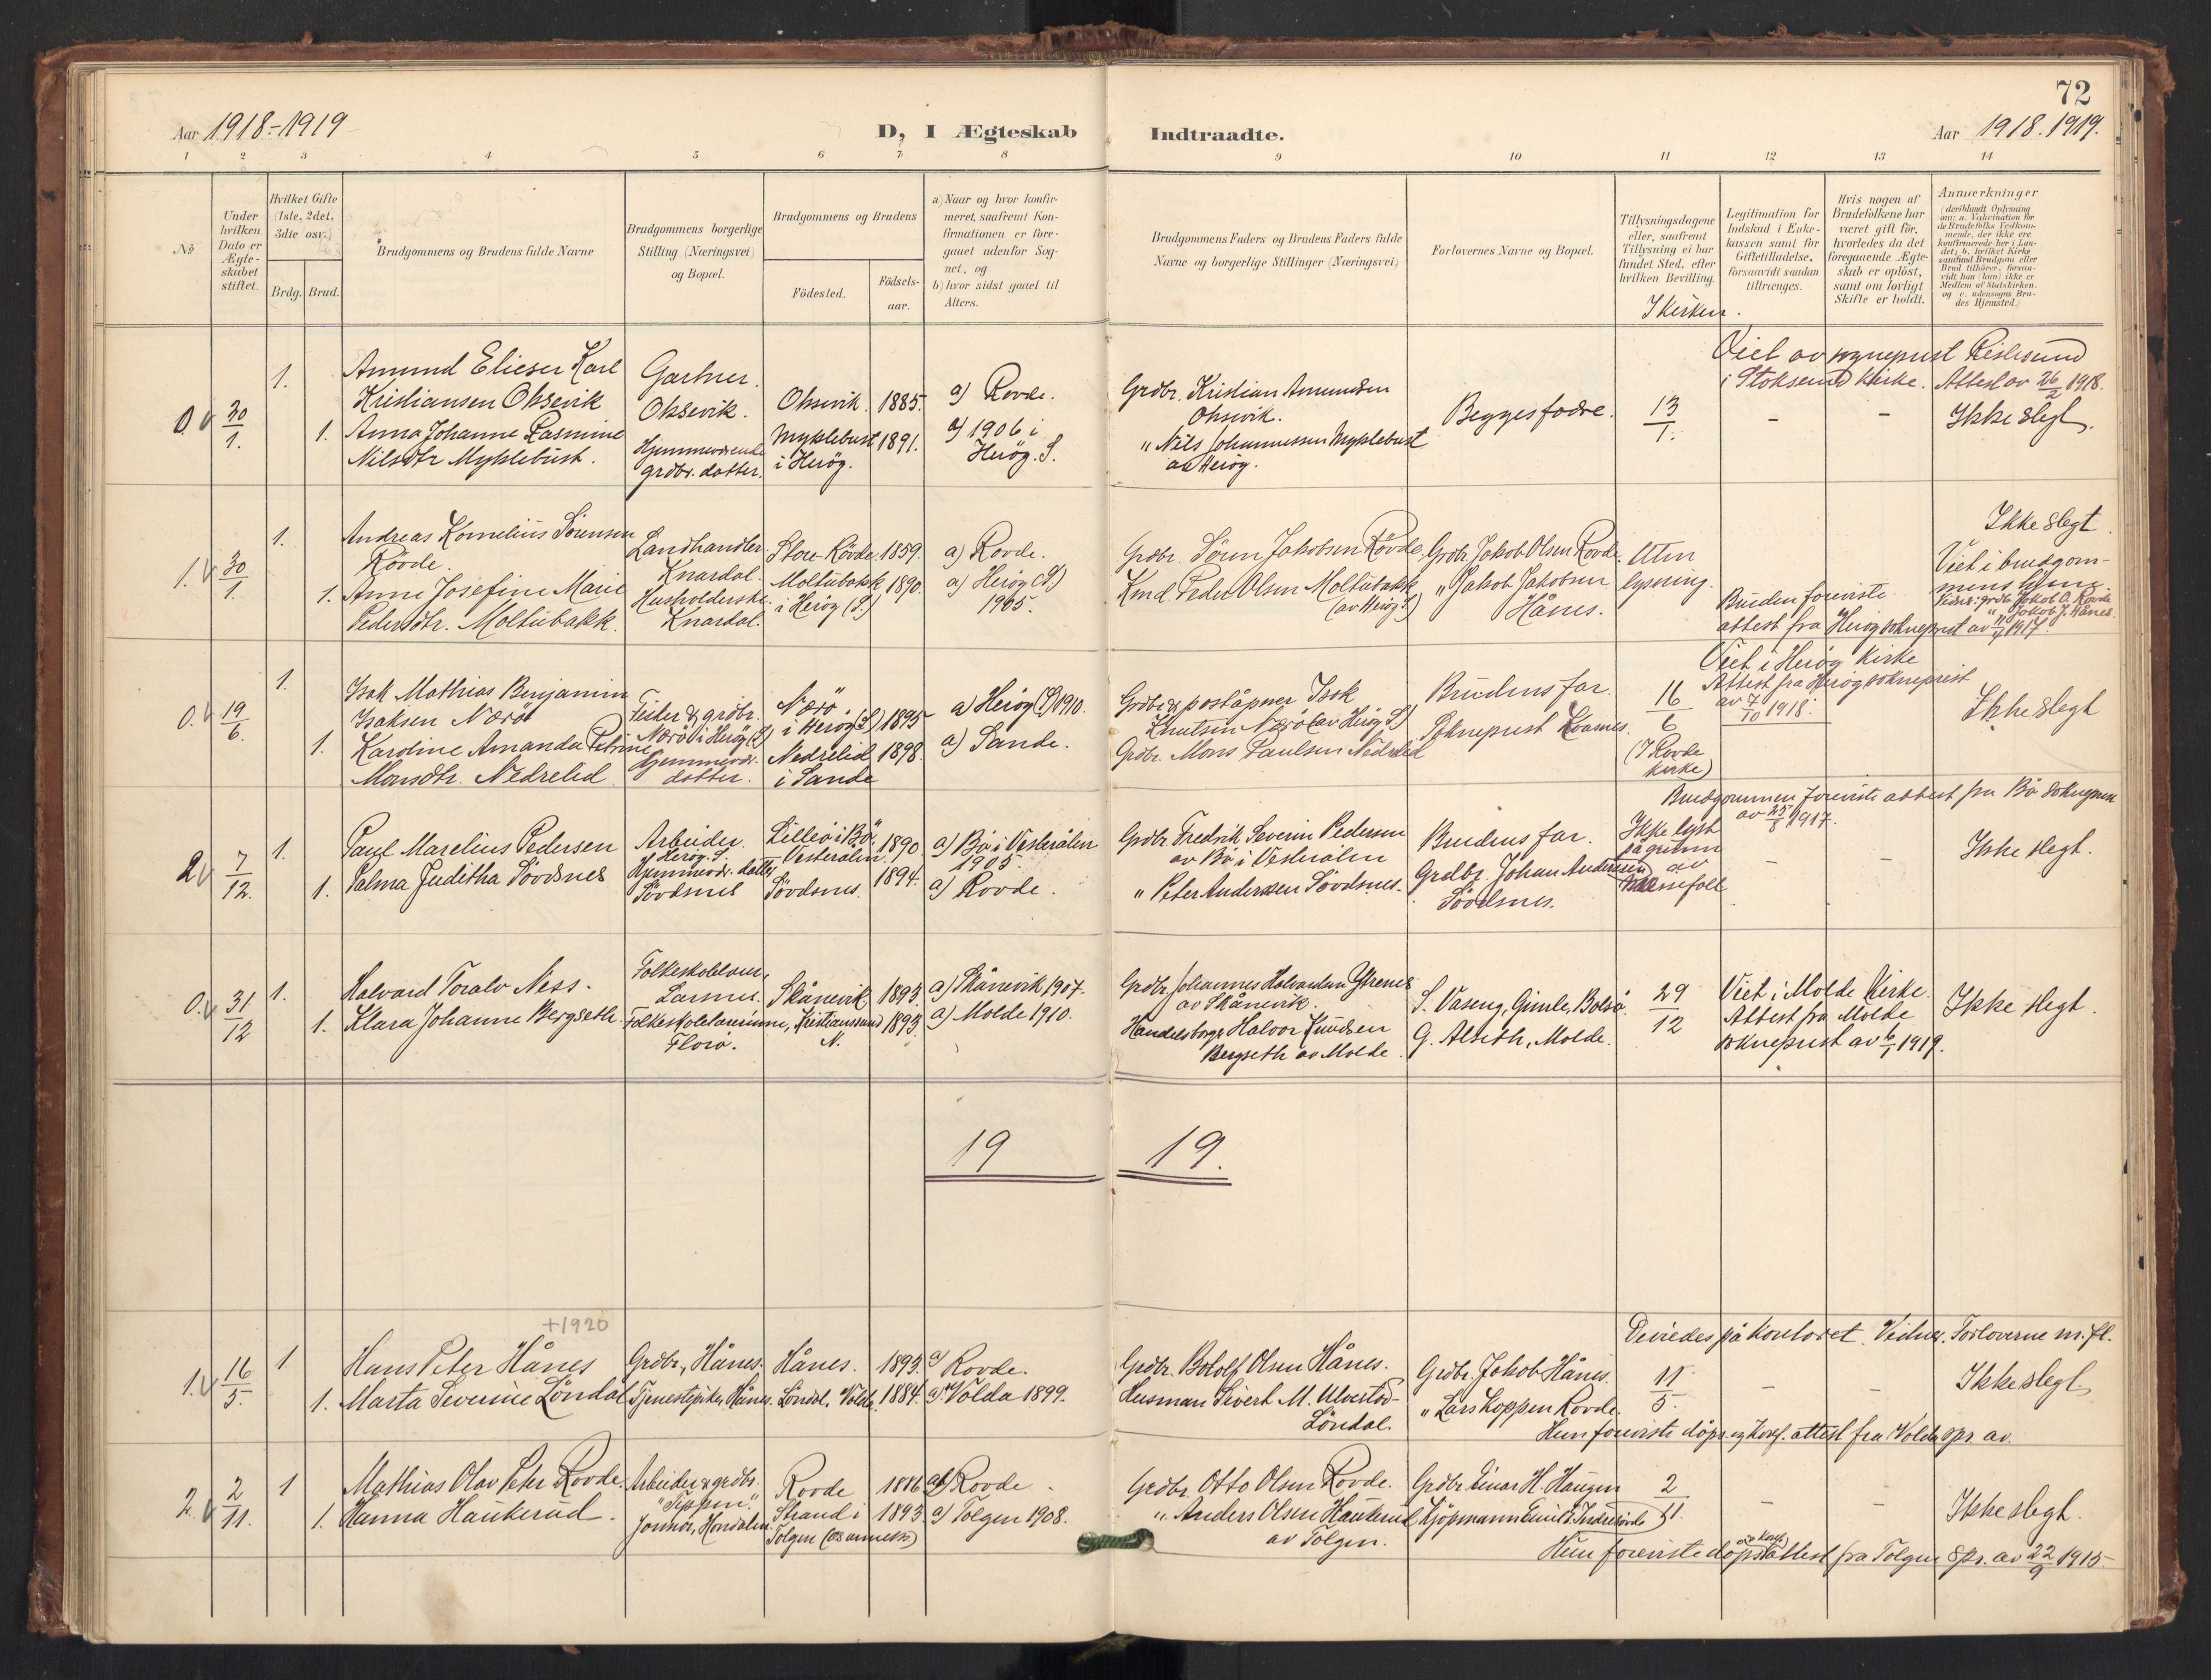 72
Aar 1918-1919
D, I Ægteskab
Indtraadte.
Aar 1918.1919.
1 2 3 4 5 6 7 8
9 10 11 12 13 14
No
Under hvilken Dato er Ægteskabet stiftet.
Hvilket Gifte (1ste, 2det, 3die osv.)
Brdg. Brud.
Brudgommens og Brudens fulde Navne
Brudgommens borgerlige Stilling (Næringsvei) og Bopæl.
Brudgommens og Brudens
Födested.
Födsels-aar.
a) Naar og hvor konfirmeret, saafremt Konfirmationen er foregaaet udenfor Sognet, og
b) hvor sidst gaaet til Alters.
Brudgommens Faders og Brudens Faders fulde Navne og borgerlige Stillinger (Næringsvei)
Forlovernes Navne og Bopæl.
Tillysningsdagene eller, saafremt Tillysning ei har fundet Sted, efter hvilken Bevilling.
I kirken.
Legitimation for Indskud i Enkekassen samt for Giftetilladelse, forsaavidt saadan tiltrænges.
Hvis nogen af Brudefolkene har været gift för, hvorledes da det foregaaende Ægteskab er oplöst, samt om lovligt Skifte er holdt.
Anmærkninger (deriblandt Oplysning om: a. Vakcination for de Brudefolks Vedkommende, der ikke ere konfirmerede her i Landet; b. hvilket Kirkesamfund Brudgom eller Brud tilhörer, forsaavidt han (hun) ikke er Medlem af Statskirken, og c. udensogns Brudes Hjemsted.)
0. 30/1. 1.
Amund Elieser Karl
Kristiansen Oksevik
1. Anna Johanne Rasmine
Nilsdtr Myklebust.
Gartner.
Oksevik.
Hjemmeværende
grdbr. datter.
Oksevik. 1885.
Myklebust 1891.
i Herög.
a) Rovde.
a) 1906 i
Heröy. S.
Grdbr. Kristian Amundsen
Oksevik.
" Nils Johannessen Myklebust
av Heröy.
Begges fædre.
13/1.
Viet av sogneprest
i Stoksund kirke. Attest av 26/2 1918.
Ikke slegt.
1. 30/1. 1.
Andreas Kornelius Sörensen
Rövde.
1. Anne Josefine Marie
Pedersdtr. Moltubakk.
Landhandler
Knardal.
Husholderske
Knardal.
Stor-Rövde. 1859.
Moltubakk 1890.
i Heröy (S.)
a) Rovde.
a) Heröy (S.)
1905.
Grdbr. Sören Jakobsen Rövde.
Kmd. Peder Olsen Moltubakk
(av Heröy S.)
Grdbr. Jakob Olsen Rovde.
" Jakob Jakobsen
Hånes.
Uten
lysning.
Bruden foreviste
attest fra Heröy sokneprest av 11/1 1917.
Ikke slegt.
Viet i brudgom-
mens hjem.
Vidner: grdbr Jakob O. Rovde
" Jakob J. Hånes.
0. 19/6. 1.
Isak Mathias Benjamin
Isaksen Nærö
1. Karoline Amanda Petrine
Monsdtr. Nedrelid
Fisker & grdbr.
Nærö i Heröy (S)
Hjemmevær.
datter.
Nærö
i Heröy (S) 1895
Nedrelid 1898.
i Sande
a) Heröy (S) 1910.
a) Sande.
Grdbr & poståpner Isak
Knutsen Nærö (av Heröy S.)
Grdbr. Mons Paulsen Nedrelid
Brudens far.
Sokneprest Kvamen.
16/6
(I Rovde
kirke)
Viet i Heröy Kirke
Attest fra Heröy sokneprest
av 7/10 1918.
Ikke slegt
2. 7/12. 1.
Paul Marelius Pedersen
1. Palma Juditha Sövdsnes
Arbeider
Heröy. S.
Hjemmevær. datter
Sövdsnes
Lillei i Bö, 1890
Vesterålen.
Sövdsnes. 1894.
a) Bö i Vesterålen
1905.
a) Rovde.
Grdbr. Fredrik Severin Pedersen
av Bö i Vesterålen
" Peter Andersen Sövdsnes.
Brudens far.
Grdbr. Johan Andersen
Sövdsnes.
Ikke lyst
på grunn
av
messefall
Brudgommen foreviste attest fra Bö sokneprest
av 25/8 1917.
Ikke slegt.
0. 31/12 1.
Halvard Toralv Ness.
1. Klara Johanne Bergseth.
Folkeskolelærer,
Larsnes.
Folkeskolelærerinne,
Florö.
Skånevik 1893.
Kristianssund 1893.
N.
a) Skånevik 1907.
a) Molde 1910.
Grdbr. Johannes Halvardsen Ytrenes
av Skånevik.
Handelsborger Halvor Knudsen
Bergseth av Molde.
S. Vaseng, Gimle, Bolsö.
G. Alseth, Molde.
29/12
Viet i Molde Kirke.
Attest fra Molde
sokneprest av 6/1 1919.
Ikke slegt.
19 19.
+1920
1. 16/5. 1
Hans Peter Hånes
1. Marta Severine Löndal
Grdbr., Hånes.
Tjenestepike, Hånes.
Hånes. 1893.
Löndal, Volda. 1884.
a) Rovde.
a) Volda 1899.
Grdbr. Botolf Olsen Hånes.
Husmann Sivert M. Ulvestad-
Löndal.
Grdbr. Jakob Hånes.
" Lars Koppen Rovde.
11/5.
De viedes på kontoret. Vidner. Forloverne m. fl.
Ikke slegt
Hun foreviste dåps- og konf. attest fra Volda spr. av
2. 2/11. 1
Mathias Olav Peter Rovde.
1. Hanna Haukerud.
Arbeider & grdbr.
"Tippen".
Jordmor,
Rovde 1886
Strand i 1893
Tolgen
a) Rovde
a) Tolgen 1908.
Grdbr. Otto Olsen Rovde.
" Anders Olsen Haukerud
av Tolgen.
Grdbr. Einar H. Haugen
Kjöpmann
2/11.
Ikke slegt.
Hun foreviste dåps- og konf. attest fra Tolgen spr. av 22/9 1915